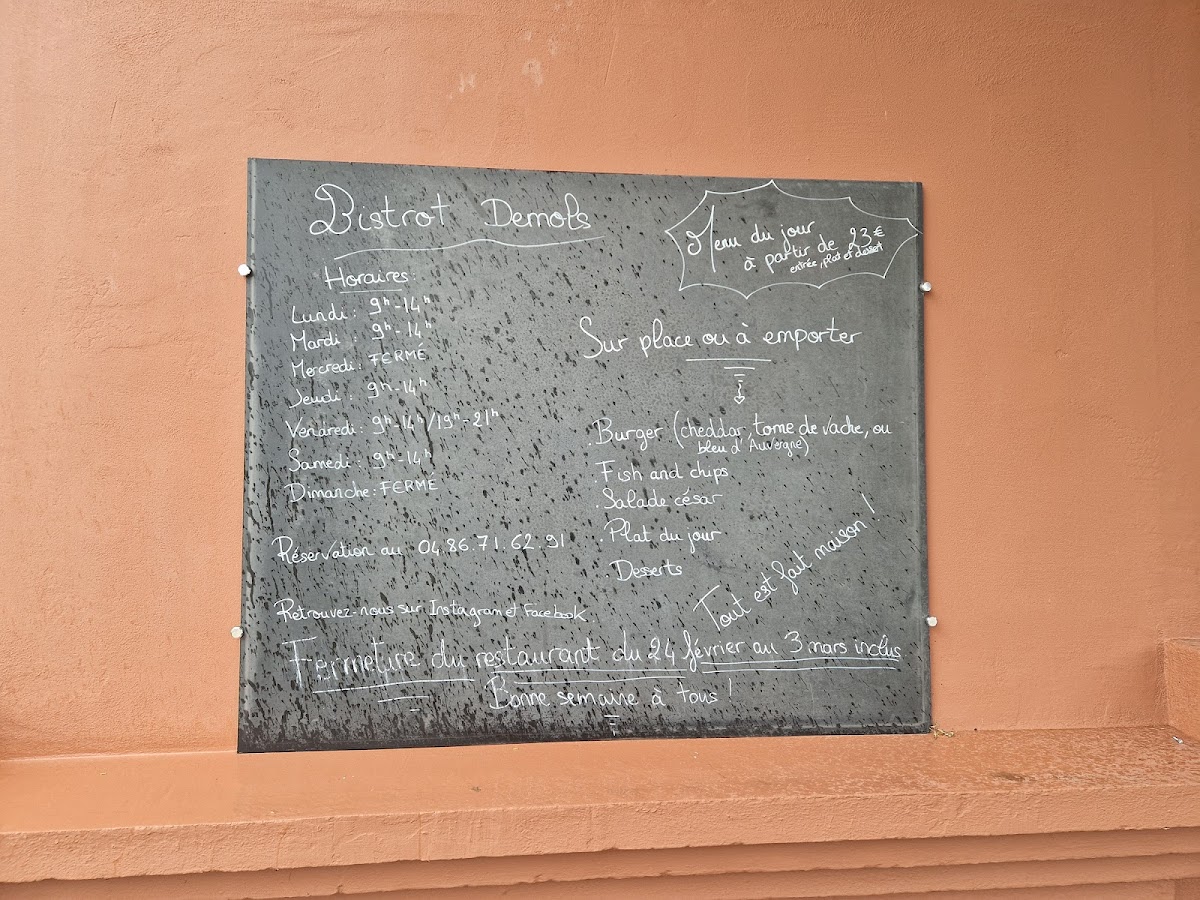 Bistrot Demols
Horaires:
Lundi : 9h-14h
Mardi : 9h-14h
Mercredi : FERMÉ
Jeudi : 9h-14h
Venredredi : 9h-14h/19h-21h
Samedi : 9h-14h
Dimanche : FERMÉ
Réservation au 04.86.71.62.91
Retrouvez-nous sur Instagram et Facebook
Menu du jour
à partir de 23€
entrée, plat et dessert
Sur place ou à emporter
. Burger (cheddar, tome de vache, ou
bleu d'Auvergne)
. Fish and chips
. Salade césar
. Plat du jour
. Desserts
Tout est fait maison !
Fermeture du restaurant du 24 février au 3 mars inclus
Bonne semaine à tous !